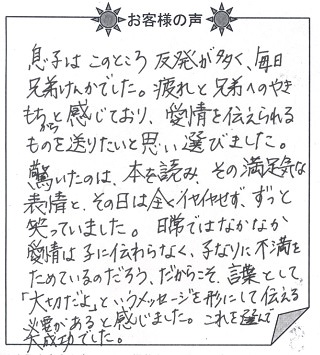 お客様の声
息子はこのところ反発が多く、毎日
兄弟けんかでした。疲れと兄弟へのやき
もちからと感じており、愛情を伝えられる
ものを送りたいと思い選びました。
驚いたのは、本を読み、その満足気な
表情と、その日は全くイヤイヤせず、ずっと
笑っていました。日常ではなかなか
愛情は子に伝わらなく、子なりに不満を
ためているのだろう、だからこそ、言葉として、
「大切だよ」というメッセージを形にして伝える
必要があると感じました。これを選んで
大成功でした。